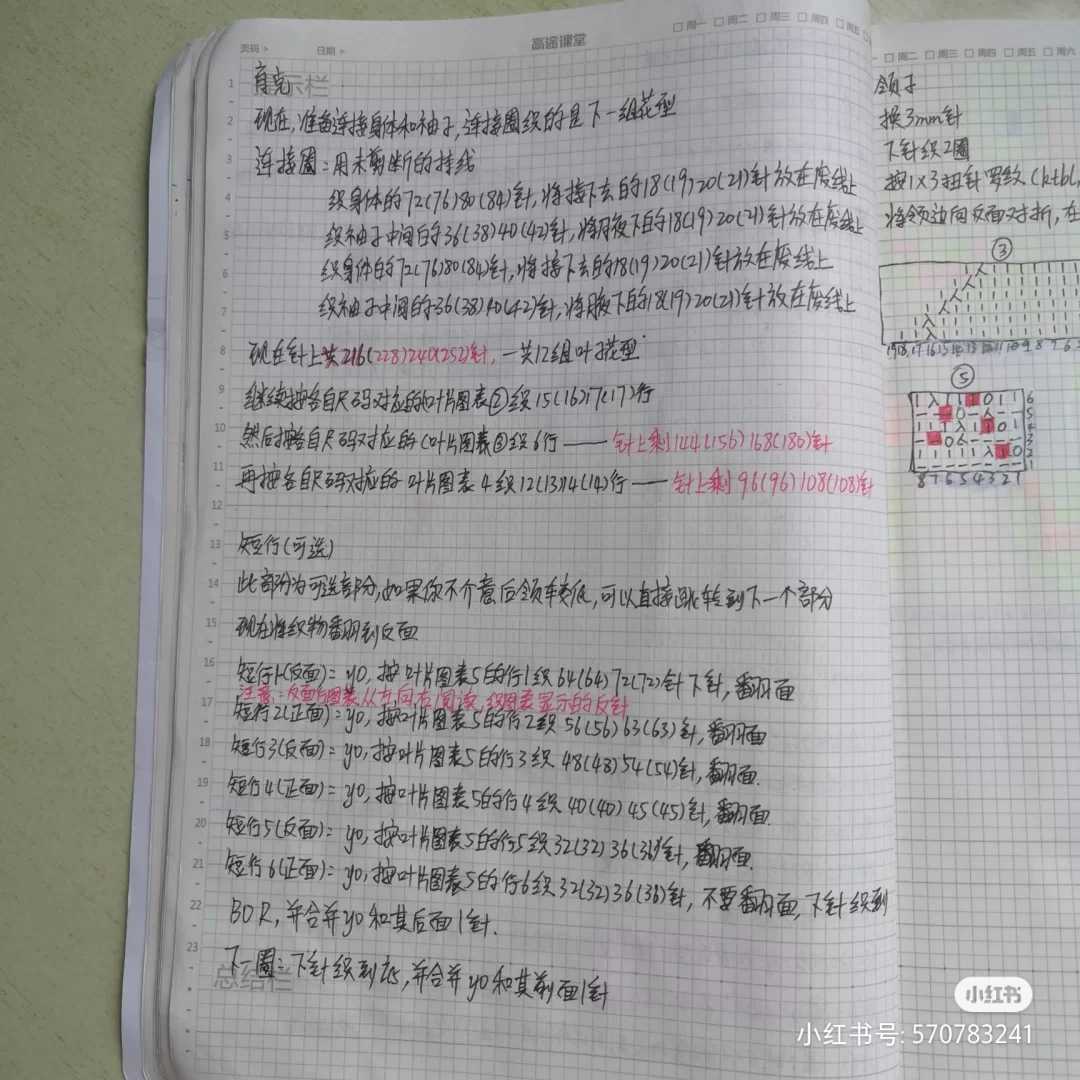 页码 >
日期 >
高途课堂
□ 周一 □ 周二 □ 周三 □ 周四 □ 周五
育克
现在,准备连接身体和袖子,连接圈织的是下一组花型
连接圈:用未剪断的持线
织身体的72(76)80(84)针,将接下去的18(19)20(21)针放在废线上
织袖子中间的36(38)40(42)针,将腋下的18(19)20(21)针放在废线上
织身体的72(76)80(84)针,将接下去的18(19)20(21)针放在废线上
织袖子中间的36(38)40(42)针,将腋下的18(19)20(21)针放在废线上
现在针上共216(228)240(252)针,一共12组叶子花型
继续按各自尺码对应的叶片图表②织15(16)17(17)行
然后按各自尺码对应的叶片图表③织6行——针上剩144(156)168(180)针
再按各自尺码对应的叶片图表4织12(13)14(14)行——针上剩96(96)108(108)针
短行(可选)
此部分为可选部分,如果你不介意后领车较低,可以直接跳转到下一个部分
现在将织物翻到反面
短行1(反面)= yo,按叶片图表5的行1织64(64)72(72)针下针,翻面
注意:反面行图表从左向右阅读,织图表显示的反针
短行2(正面)= yo,按叶片图表5的行2织56(56)63(63)针,翻面
短行3(反面)= yo,按叶片图表5的行3织48(48)54(54)针,翻面.
短行4(正面)= yo,按叶片图表5的行4织40(40)45(45)针,翻面.
短行5(反面)= yo,按叶片图表5的行5织32(32)36(36)针,翻面.
短行6(正面)= yo,按叶片图表5的行6织32(32)36(36)针,不要翻面,下针织到
BOR,并合并yo和其后面1针.
下一圈:下针织到yo,并合并yo和其前面1针
总结栏
□ 周二 □ 周三 □ 周四 □ 周五 □ 周六
领子
换3mm针
下针织2圈
按1×3扭针罗纹(ktbl,
将领边向反面对折,在
③
⑤
8 7 6 5 4 3 2 1
小红书
小红书号: 570783241